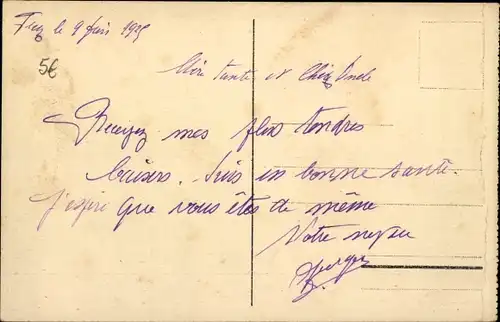 Fez le 9 Juin 1925
5€
Chère Tante et Cher Oncle
Recevez mes plus tendres
baisers. Suis en bonne santé.
J'espère que vous êtes de même
Votre neveu